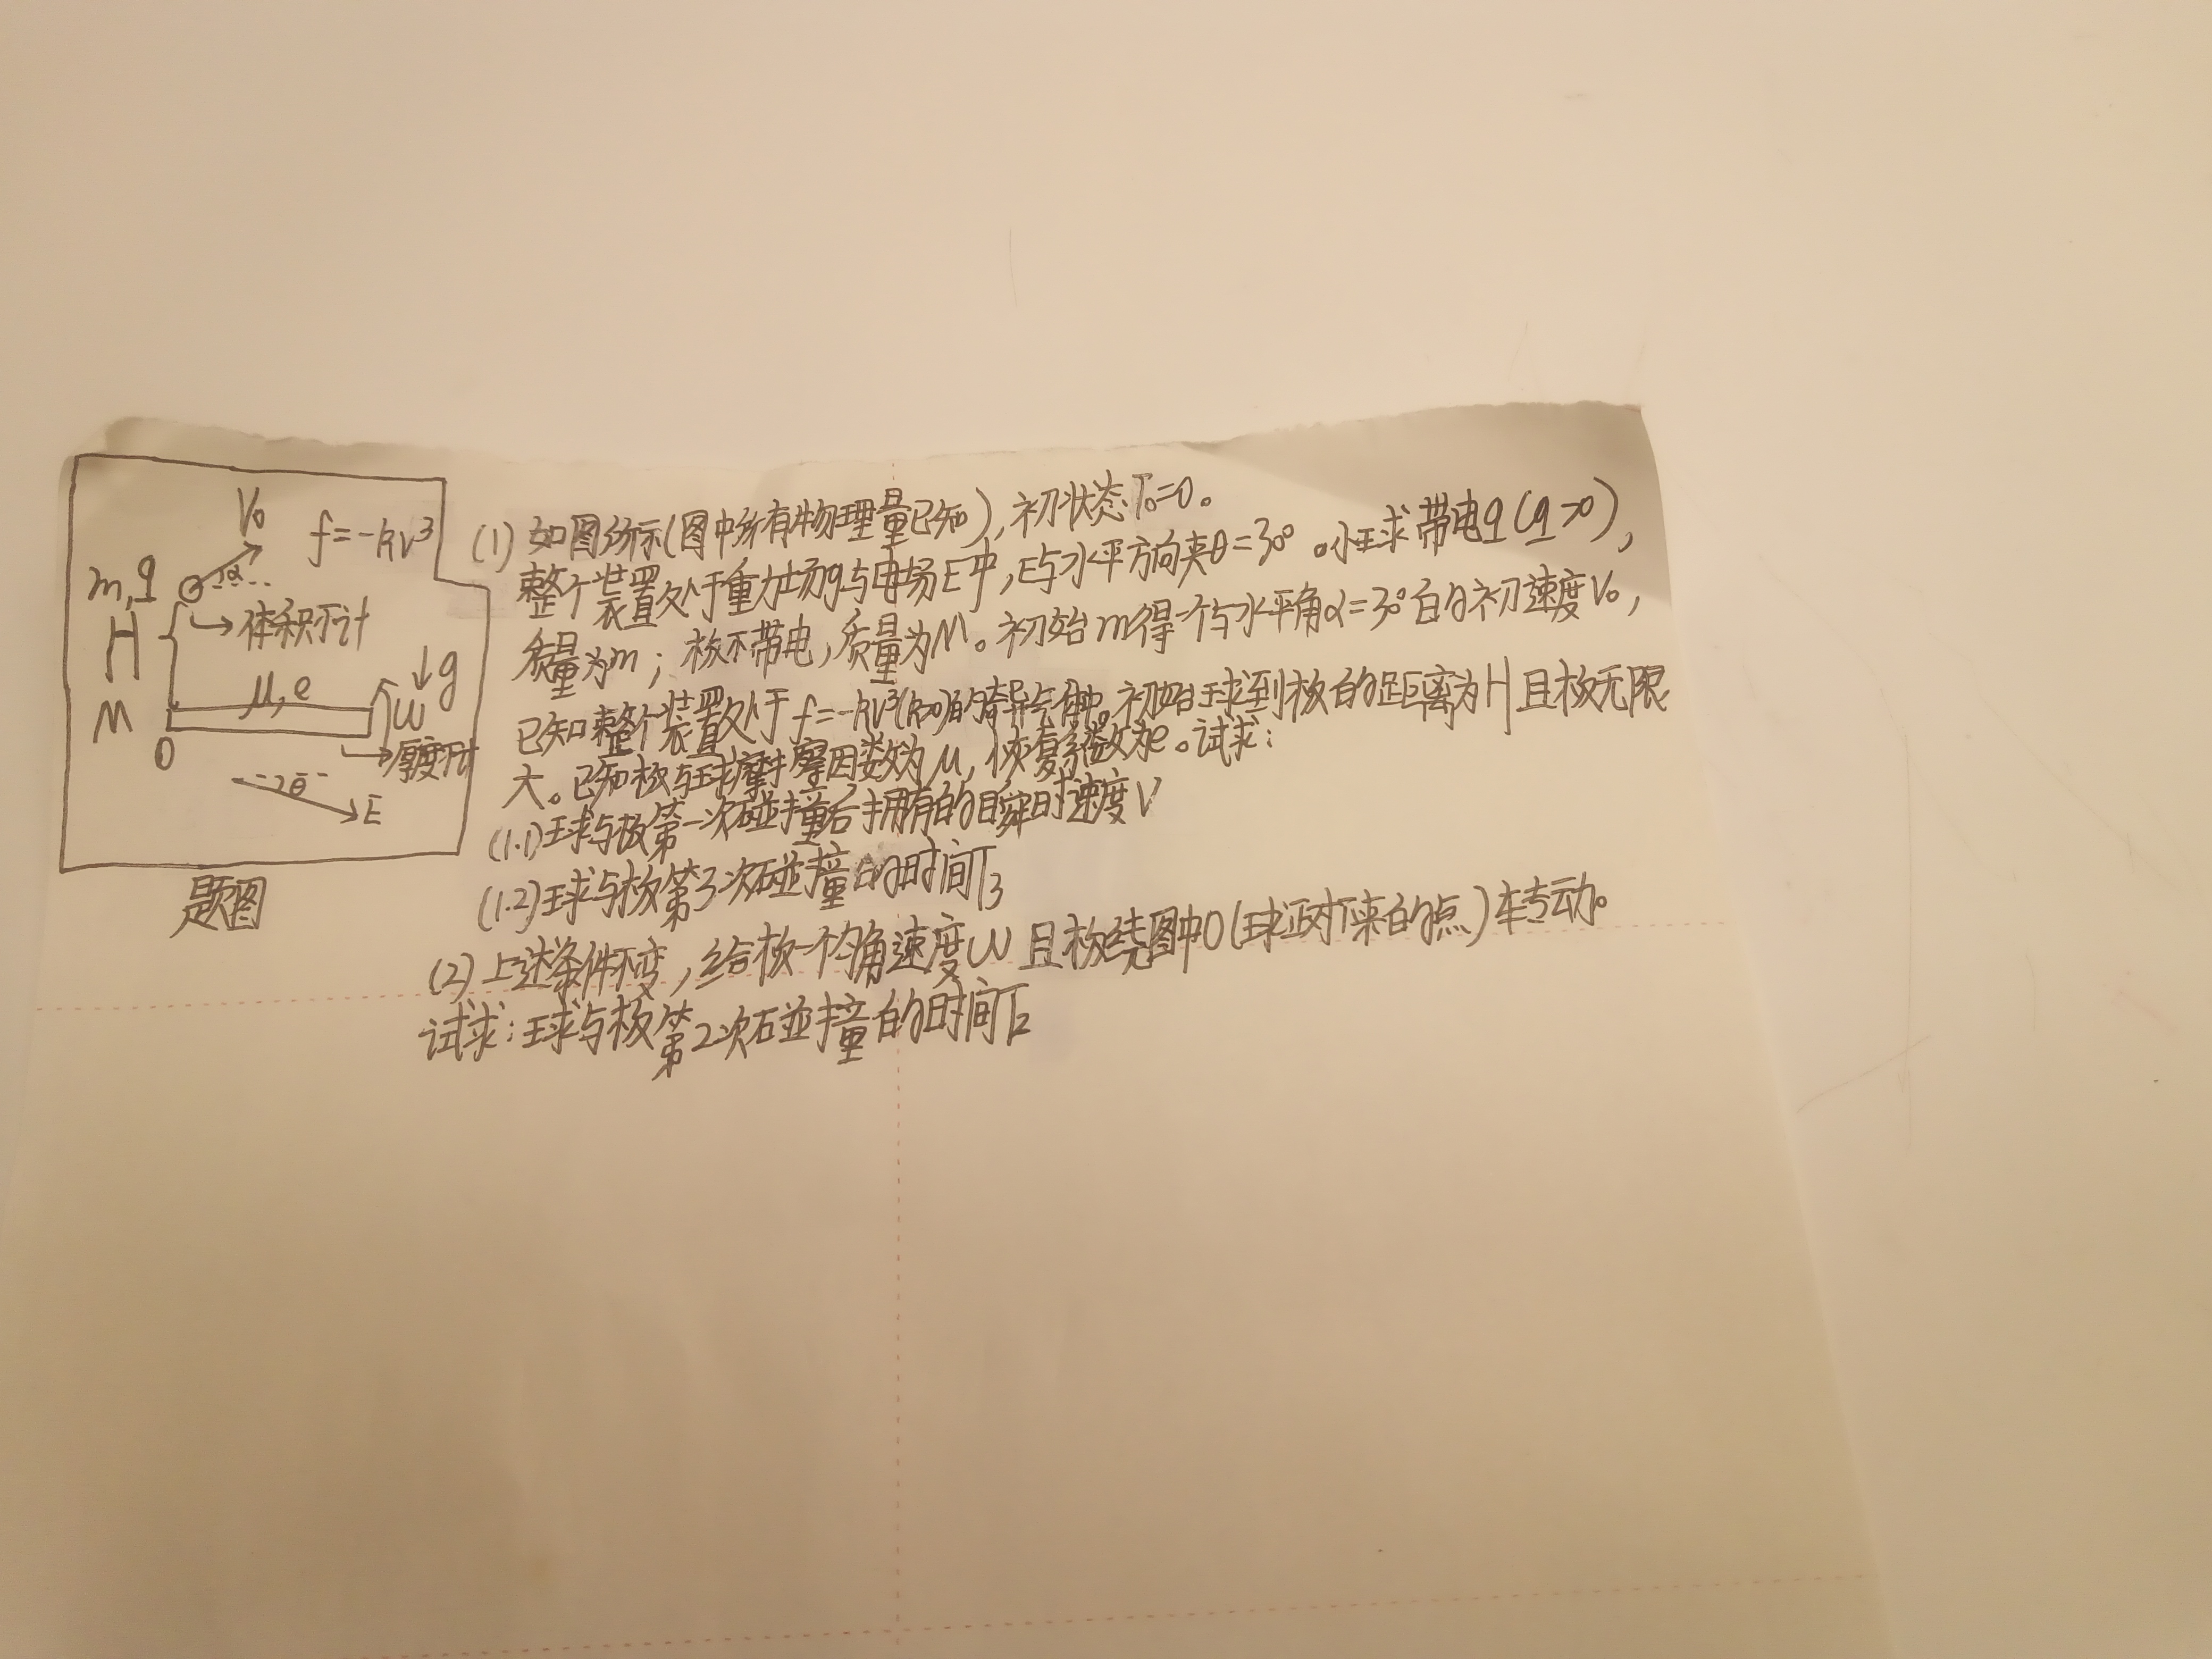 V₀
f=-kv³
m,q
α
体积不计
H
↓g
μ,e
ω
M
O
厚度不计
θ
E
题图
(1) 如图所示(图中所有物理量已知),初状态T₀=0。
整个装置处于重力场g与电场E中,E与水平方向夹θ=30°。小球带电q(q>0),
质量为m;板不带电,质量为M。初始m得一个与水平角α=30°的初速度V₀,
已知整个装置处于f=-kv³(k>0)的奇异气体中。初始球到板的距离为H且板无限
大。已知板与球摩擦因数为μ,恢复系数为e。试求:
(1.1)球与板第一次碰撞后拥有的瞬时速度V
(1.2)球与板第3次碰撞的时间T₃
(2)上述条件不变,给板一个匀角速度ω且板绕图中O(球正对下来的点)转动。
试求:球与板第2次碰撞的时间T₂